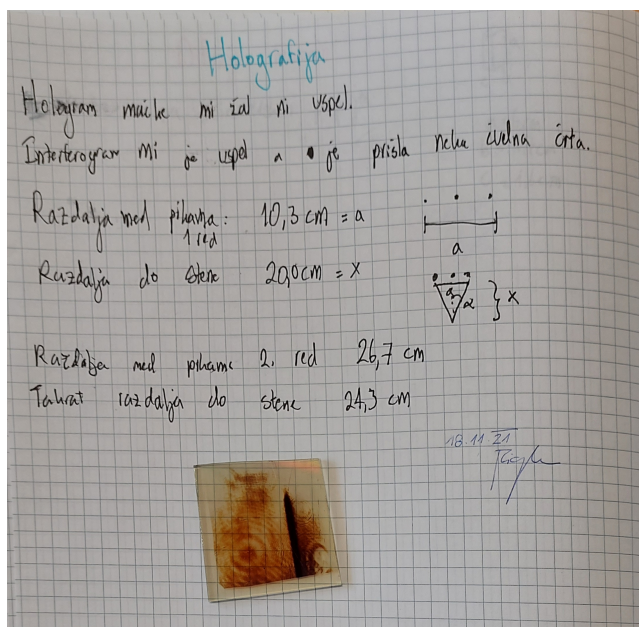 Holografija
Hologram mačke mi žal ni uspel.
Interferogram mi je uspel a je prišla neka čudna črta.
Razdalja med pikama: 10,3 cm = a
1 red
a
Razdalja do stene 20,0 cm = x
α x
Razdalja med pikame 2. red 26,7 cm
Takrat razdalja do stene 24,3 cm
18.11 21